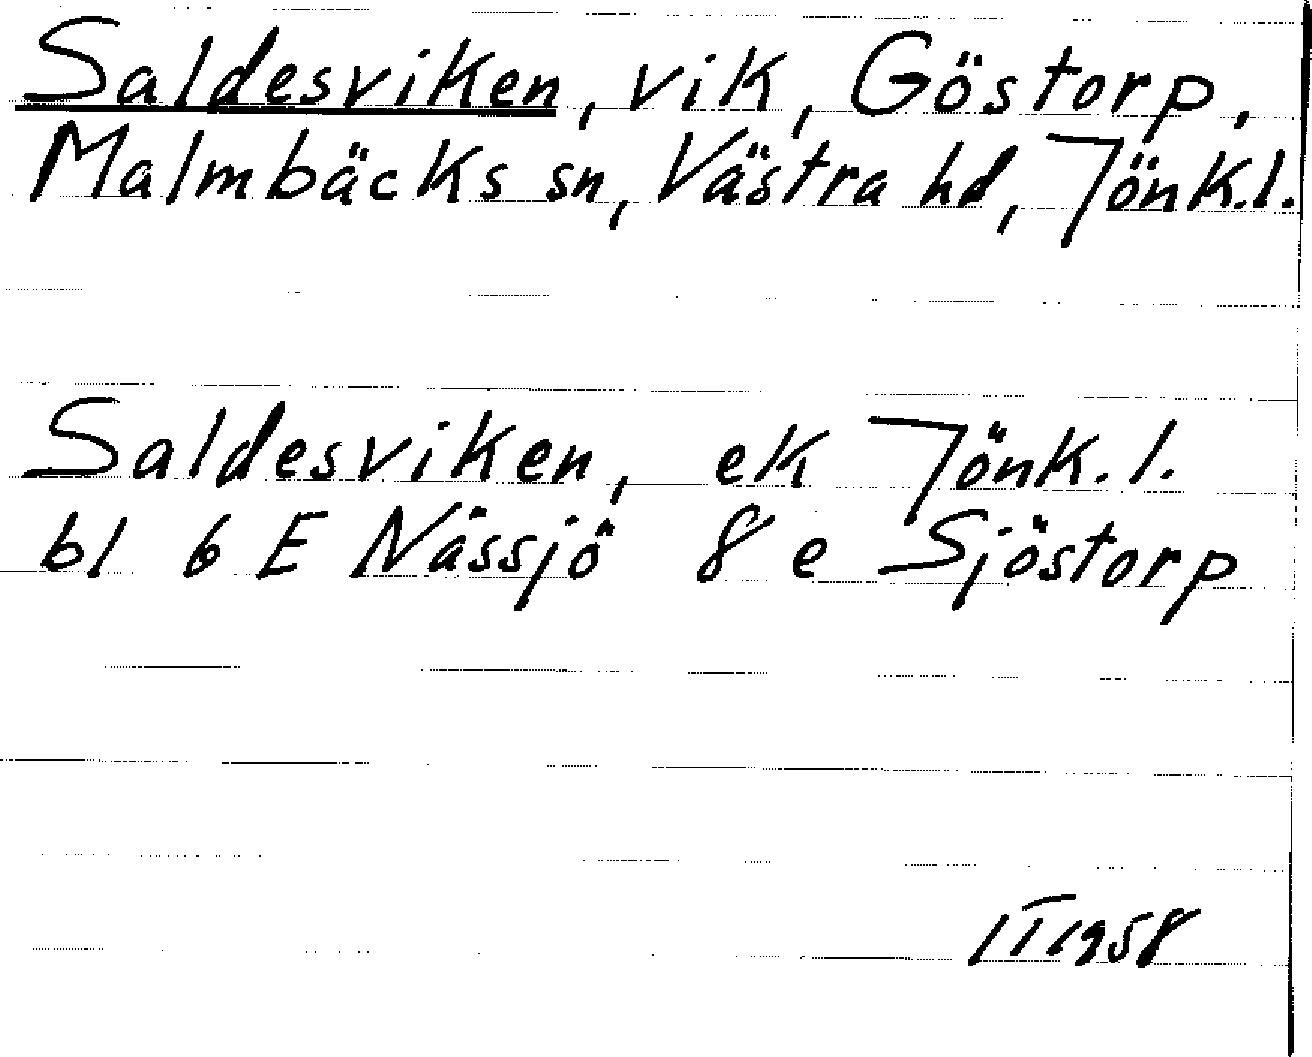 Saldesviken, vik, Göstorp,
Malmbäcks sn, Västra hd, Jönk.l.
Saldesviken, ek Jönk.l.
bl 6 E Nässjö 8 e Sjöstorp
1958